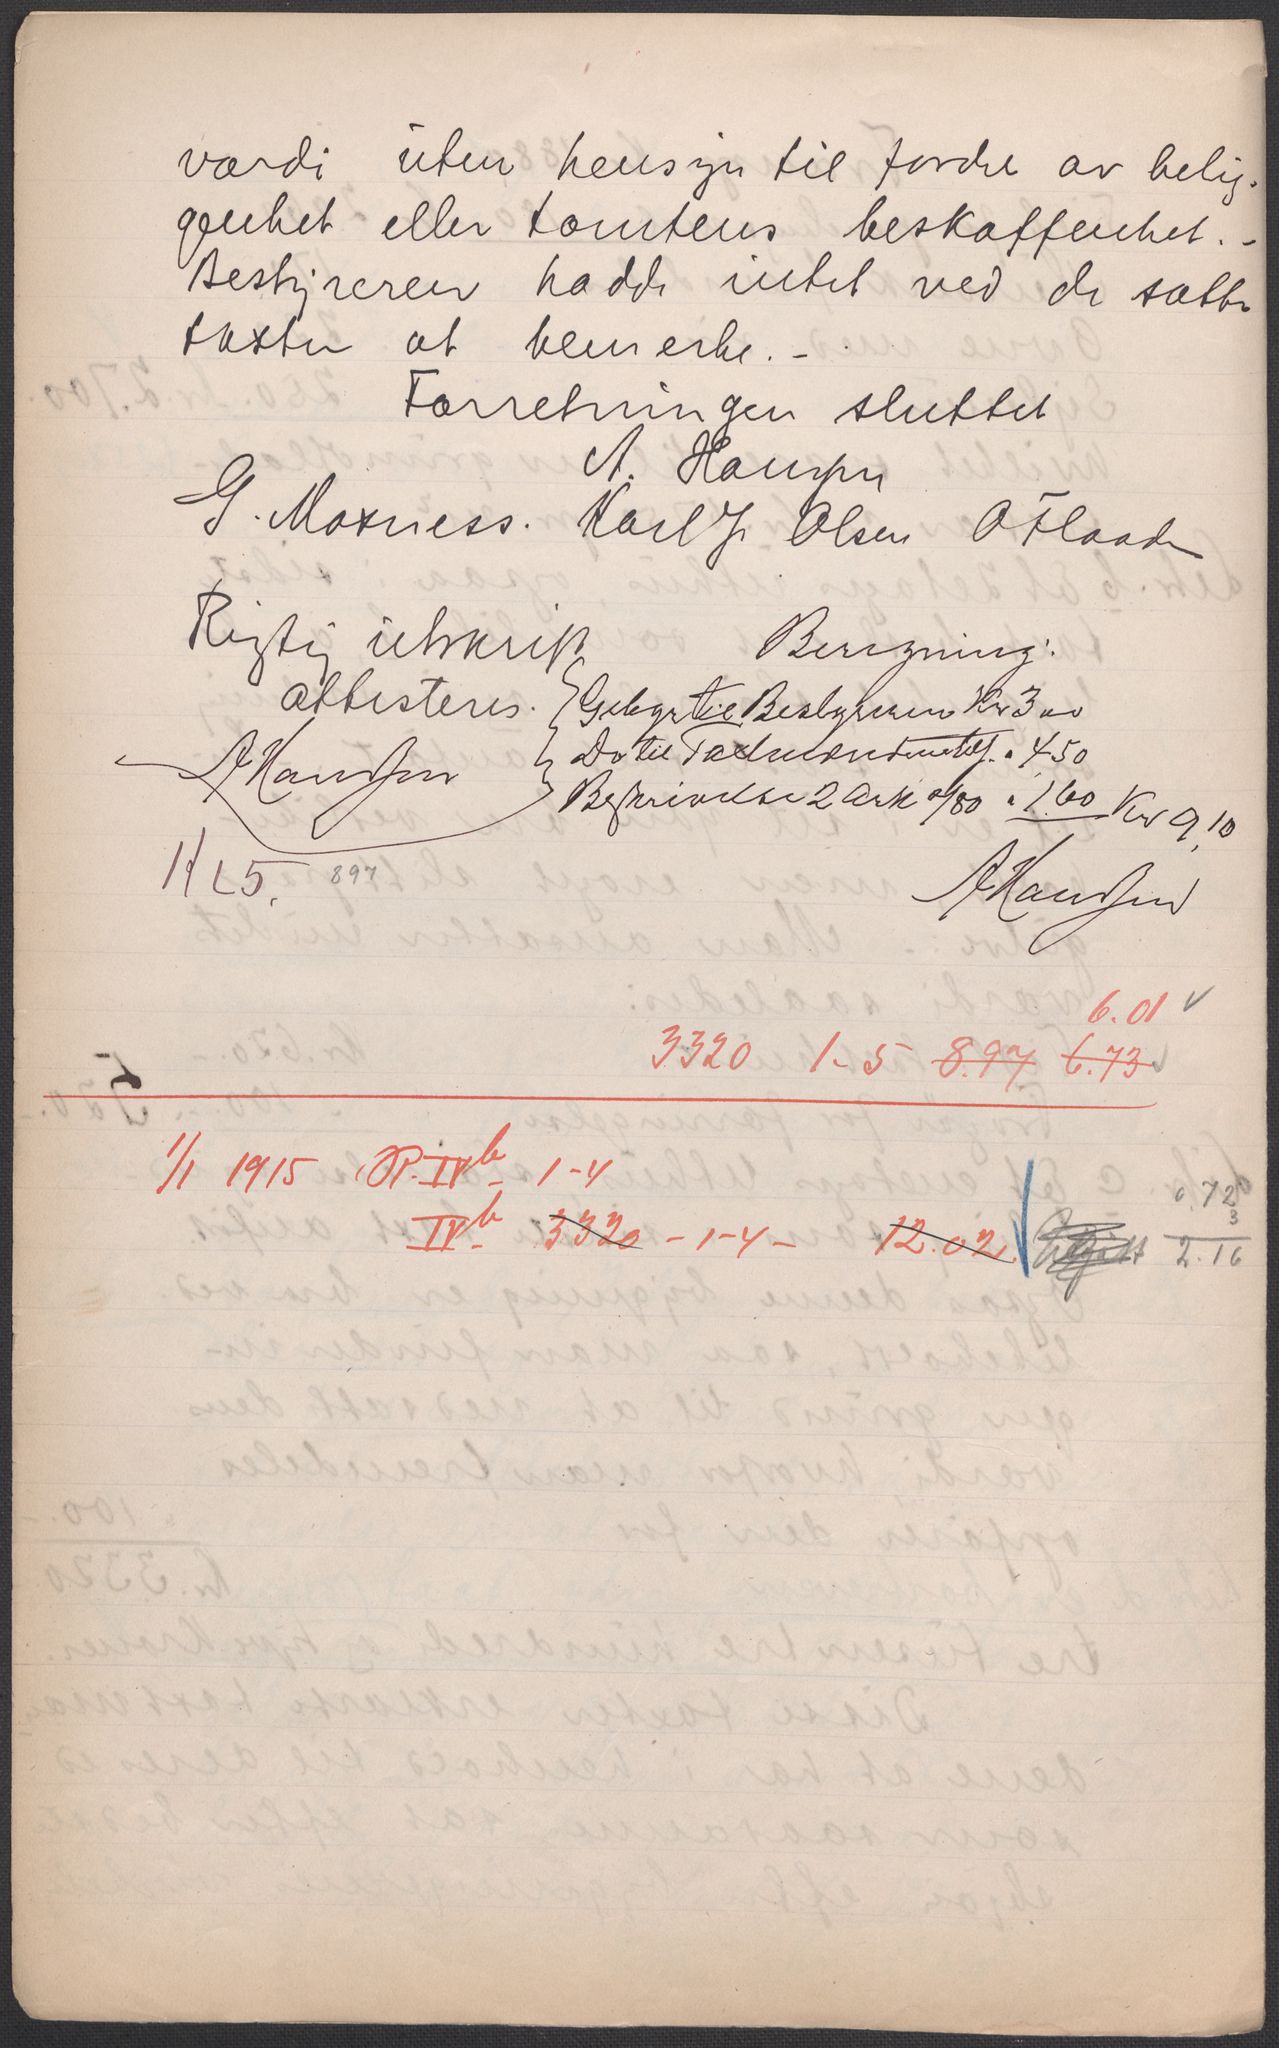 værdi uten hensyn til fordel av belig-
genhet eller tomtens beskaffenhet. -
Bestyreren hadde intet ved de satte
taxter at bemerke. -
Forretningen sluttet
A. Hansen
G. Moxness. Karl J. Olsen O Flaaden
Rigtig utskrift
attesteres.
AHansen
Beregning:
Gebyr til Bestyreren Kr 3 00
Do til Taxtmænd " 4 50
Beskrivelse 2 Ark a /80 " 1.60 Kr 9,10
AHansen
K L 5. 897
6.01 ✓
3320 1-5 8.97 6.73
1/1 1915 P. IVb 1-4
IVb 3320 - 1-4 - 12.02
0.72
3
2.16